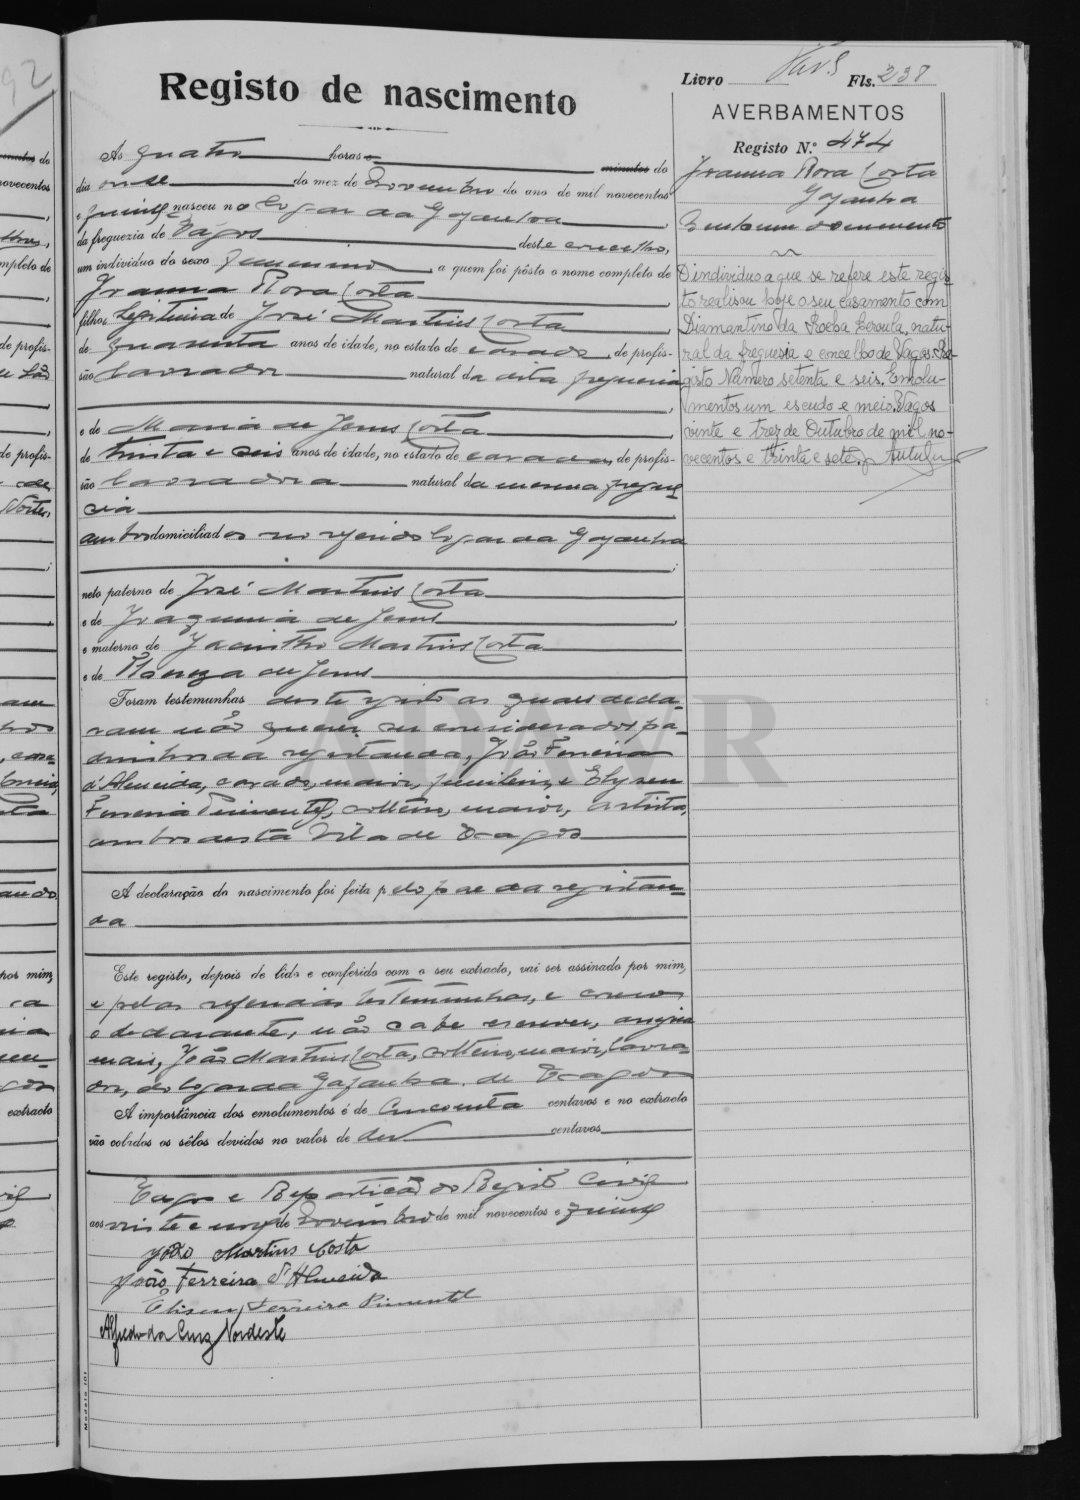 Livro Fls. 238
Registo de nascimento
AVERBAMENTOS
Registo N.º 474
Joanna Rosa Costa
Gafanha
Nenhum documento
O individuo a que se refere este regis-
to realisou hoje o seu casamento com
Diamantino da Rocha Ceroula, natu-
ral da freguesia e concelho de Vagos. Re-
gisto Número setenta e seis. Emolu-
mentos um escudo e meio. Vagos
vinte e trez de Outubro de mil no-
vecentos e trinta e sete.
Ás quatro horas e minutos do
dia onze do mez de Novembro do ano de mil novecentos
e quinze nasceu no logar da Gafanha,
da freguezia de Vagos deste concelho,
um individuo do sexo femenino, a quem foi pôsto o nome completo de
Joanna Rosa Costa,
filha legitima de José Martins Costa,
de quarenta anos de idade, no estado de casado, de profis-
são lavrador natural da dita freguesia,
e de Maria de Jesus Costa,
de trinta e seis anos de idade, no estado de casada, de profis-
são lavradora natural da mesma fregue-
sia
ambos domiciliados no referido logar da Gafanha;
neto paterno de José Martins Costa
e de Joaquina de Jesus,
e materno de Jacintho Martins Costa
e de Roza de Jesus
Foram testemunhas deste registo as quaes decla-
ram não querer ser considerados pa-
drinhos da registanda, João Ferreira
d'Almeida, casado, maior, e Elyseu
Ferreira Pimentel, solteiro, maior, artista,
ambos desta Vila de Vagos
A declaração do nascimento foi feita pelo pae da registan-
da
Este registo, depois de lido e conferido com o seu extracto, vai ser assinado por mim,
e pelas referidas testemunhas, e como
o declarante, não sabe escrever, assigna
mais, João Martins Costa, solteiro, maior, lavra-
dor, do logar da Gafanha de Vagos
A importância dos emolumentos é de cincoenta centavos e no extracto
vão colados os sêlos devidos no valor de dez centavos
Vagos e Repartição do Registo Civil
aos vinte e nove de Novembro de mil novecentos e quinze
João Martins Costa
João Ferreira d'Almeida
Eliseu Ferreira Pimentel
Alfredo da Cruz Nordeste
Modelo 101